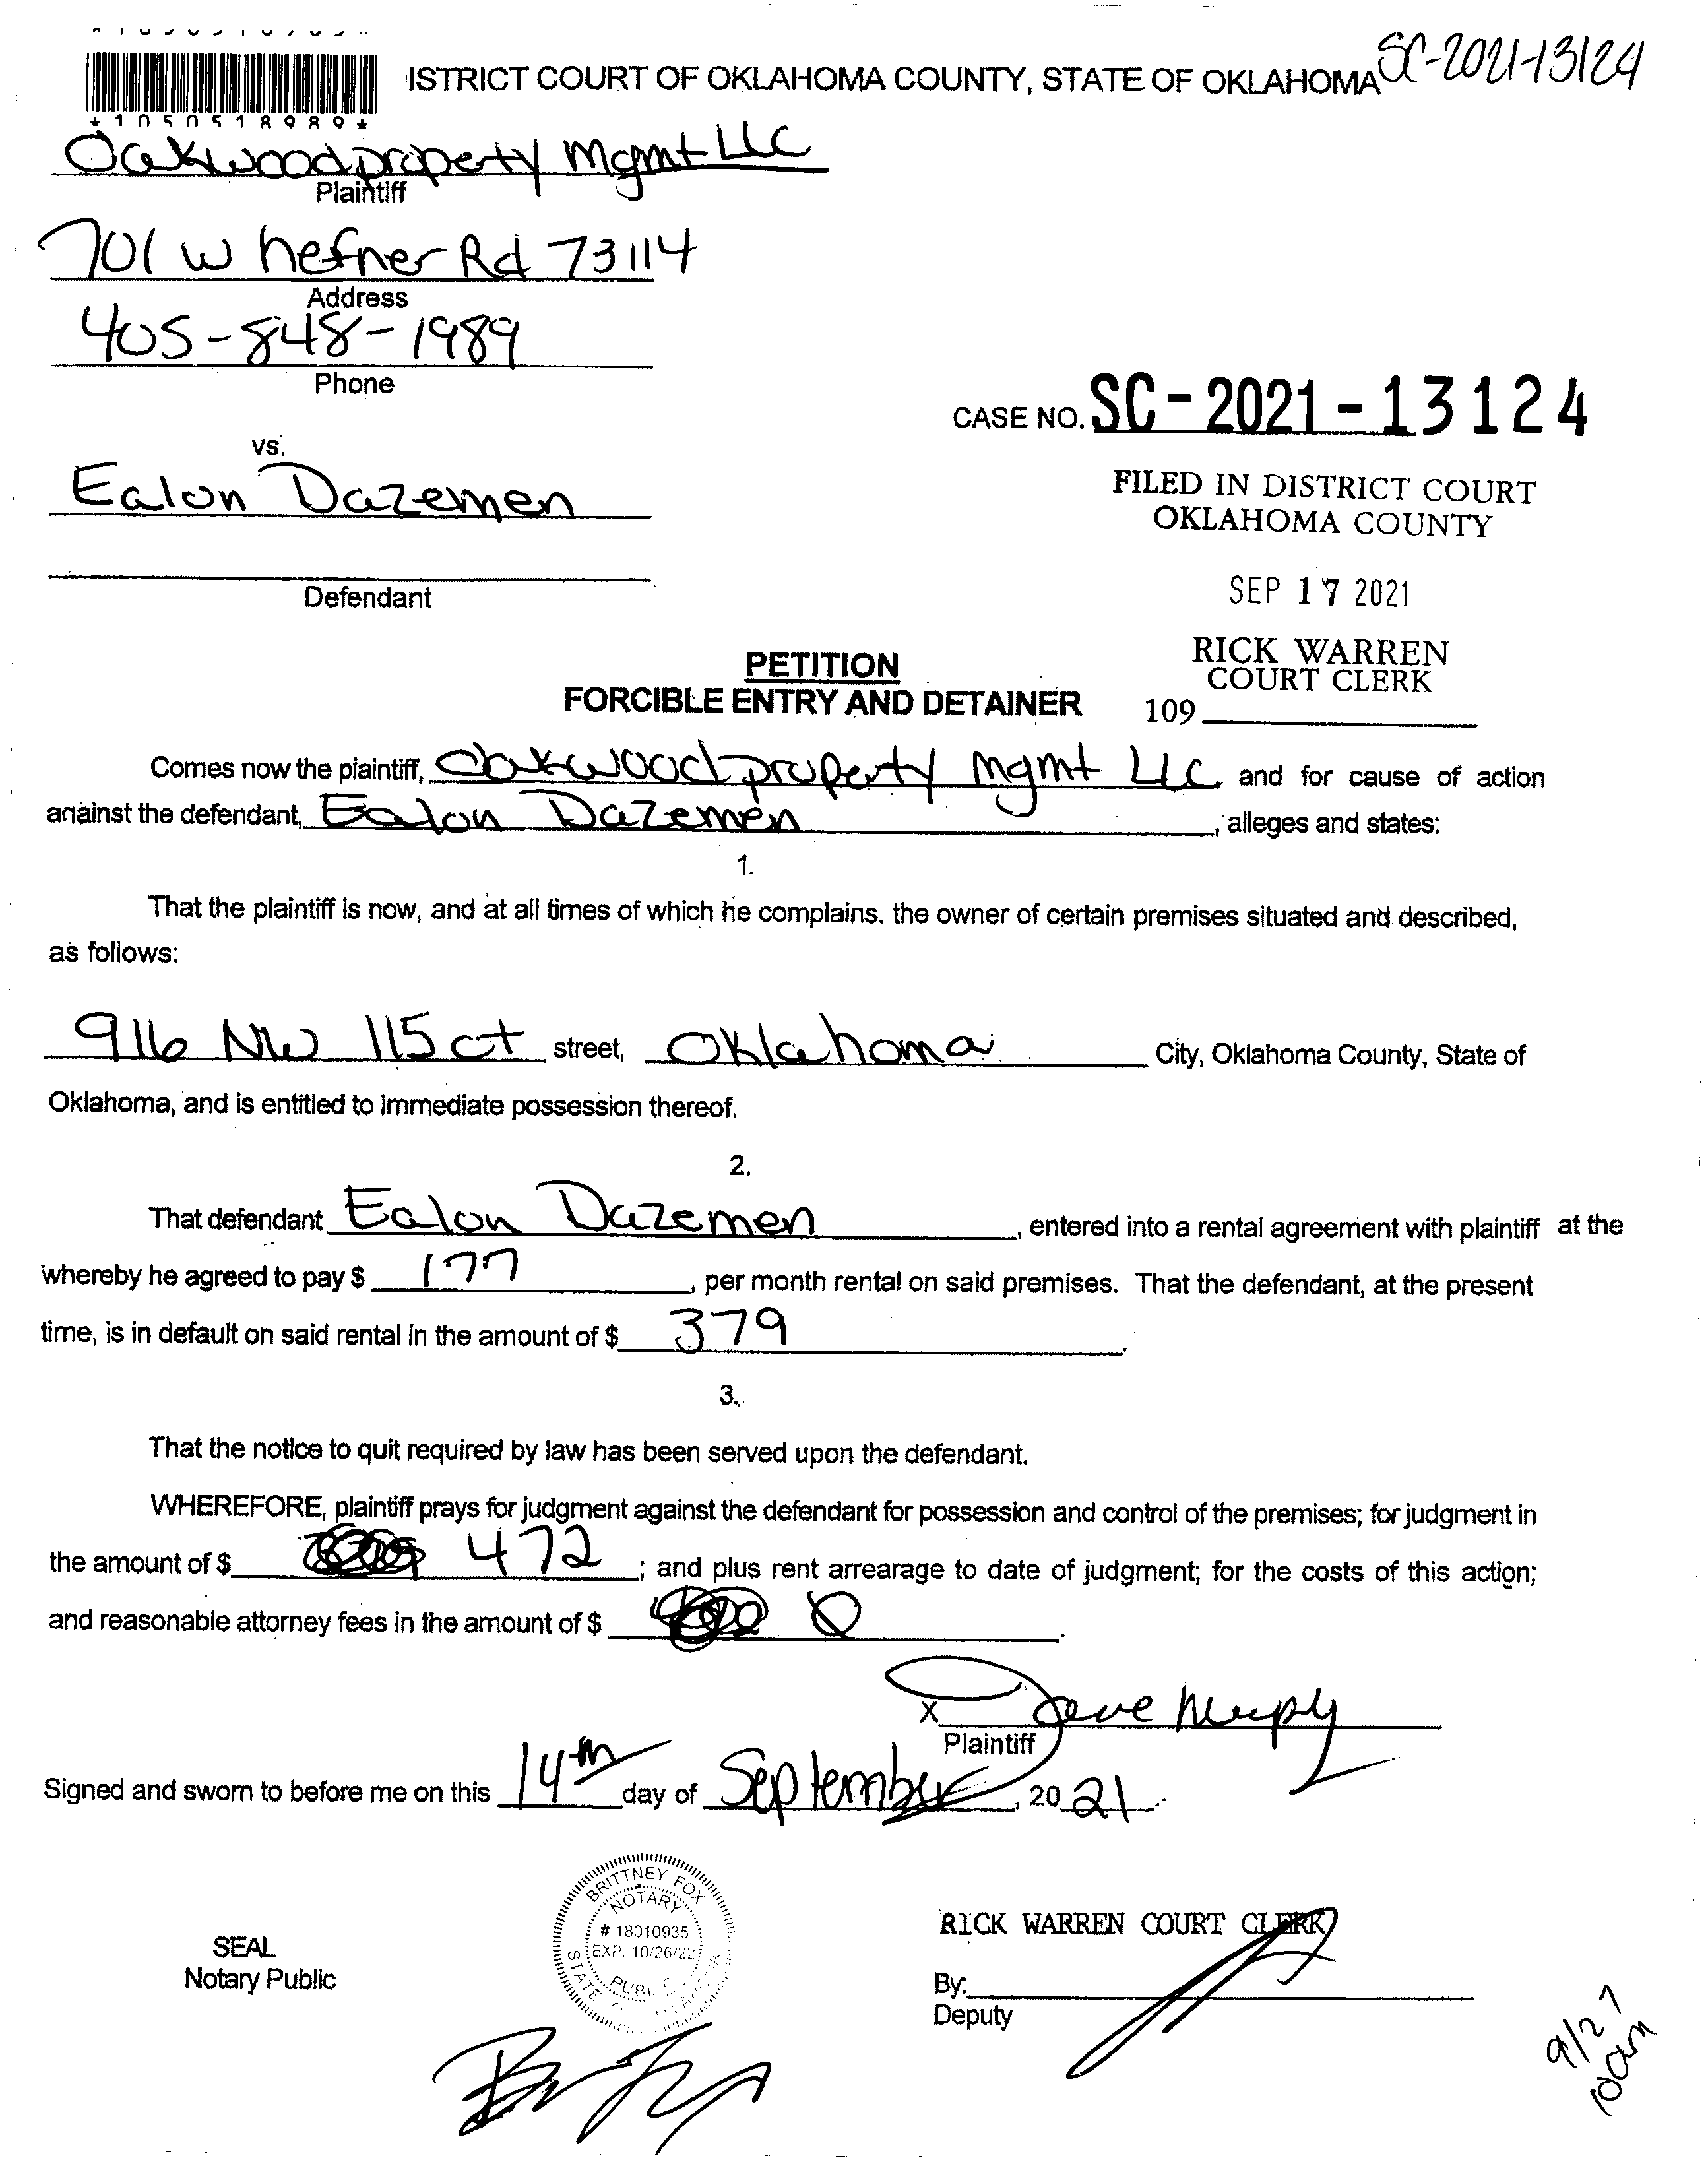 ISTRICT COURT OF OKLAHOMA COUNTY, STATE OF OKLAHOMA SC-2021-13124
*1050518989*
Oakwood property Mgmt LLC
Plaintiff
701 W hefner Rd 73114
Address
405-848-1989
Phone
CASE NO. SC-2021-13124
vs.
Ealon Dazemen
FILED IN DISTRICT COURT
OKLAHOMA COUNTY
Defendant
SEP 17 2021
RICK WARREN
COURT CLERK
109
PETITION
FORCIBLE ENTRY AND DETAINER
Comes now the plaintiff, Oakwood property Mgmt LLC, and for cause of action
against the defendant, Ealon Dazemen, alleges and states:
1.
That the plaintiff is now, and at all times of which he complains, the owner of certain premises situated and described,
as follows:
916 NW 115 ct street, Oklahoma City, Oklahoma County, State of
Oklahoma, and is entitled to immediate possession thereof.
2.
That defendant Ealon Dazemen, entered into a rental agreement with plaintiff at the
whereby he agreed to pay $ 177, per month rental on said premises. That the defendant, at the present
time, is in default on said rental in the amount of $ 379.
3.
That the notice to quit required by law has been served upon the defendant.
WHEREFORE, plaintiff prays for judgment against the defendant for possession and control of the premises; for judgment in
the amount of $ 472; and plus rent arrearage to date of judgment; for the costs of this action;
and reasonable attorney fees in the amount of $ 0.
X
Plaintiff
Signed and sworn to before me on this 14th day of September, 2021.
BRITTNEY FOX
NOTARY
# 18010935
EXP. 10/26/22
PUBLIC
STATE
SEAL
Notary Public
RICK WARREN COURT CLERK
By:
Deputy
9/27
10am